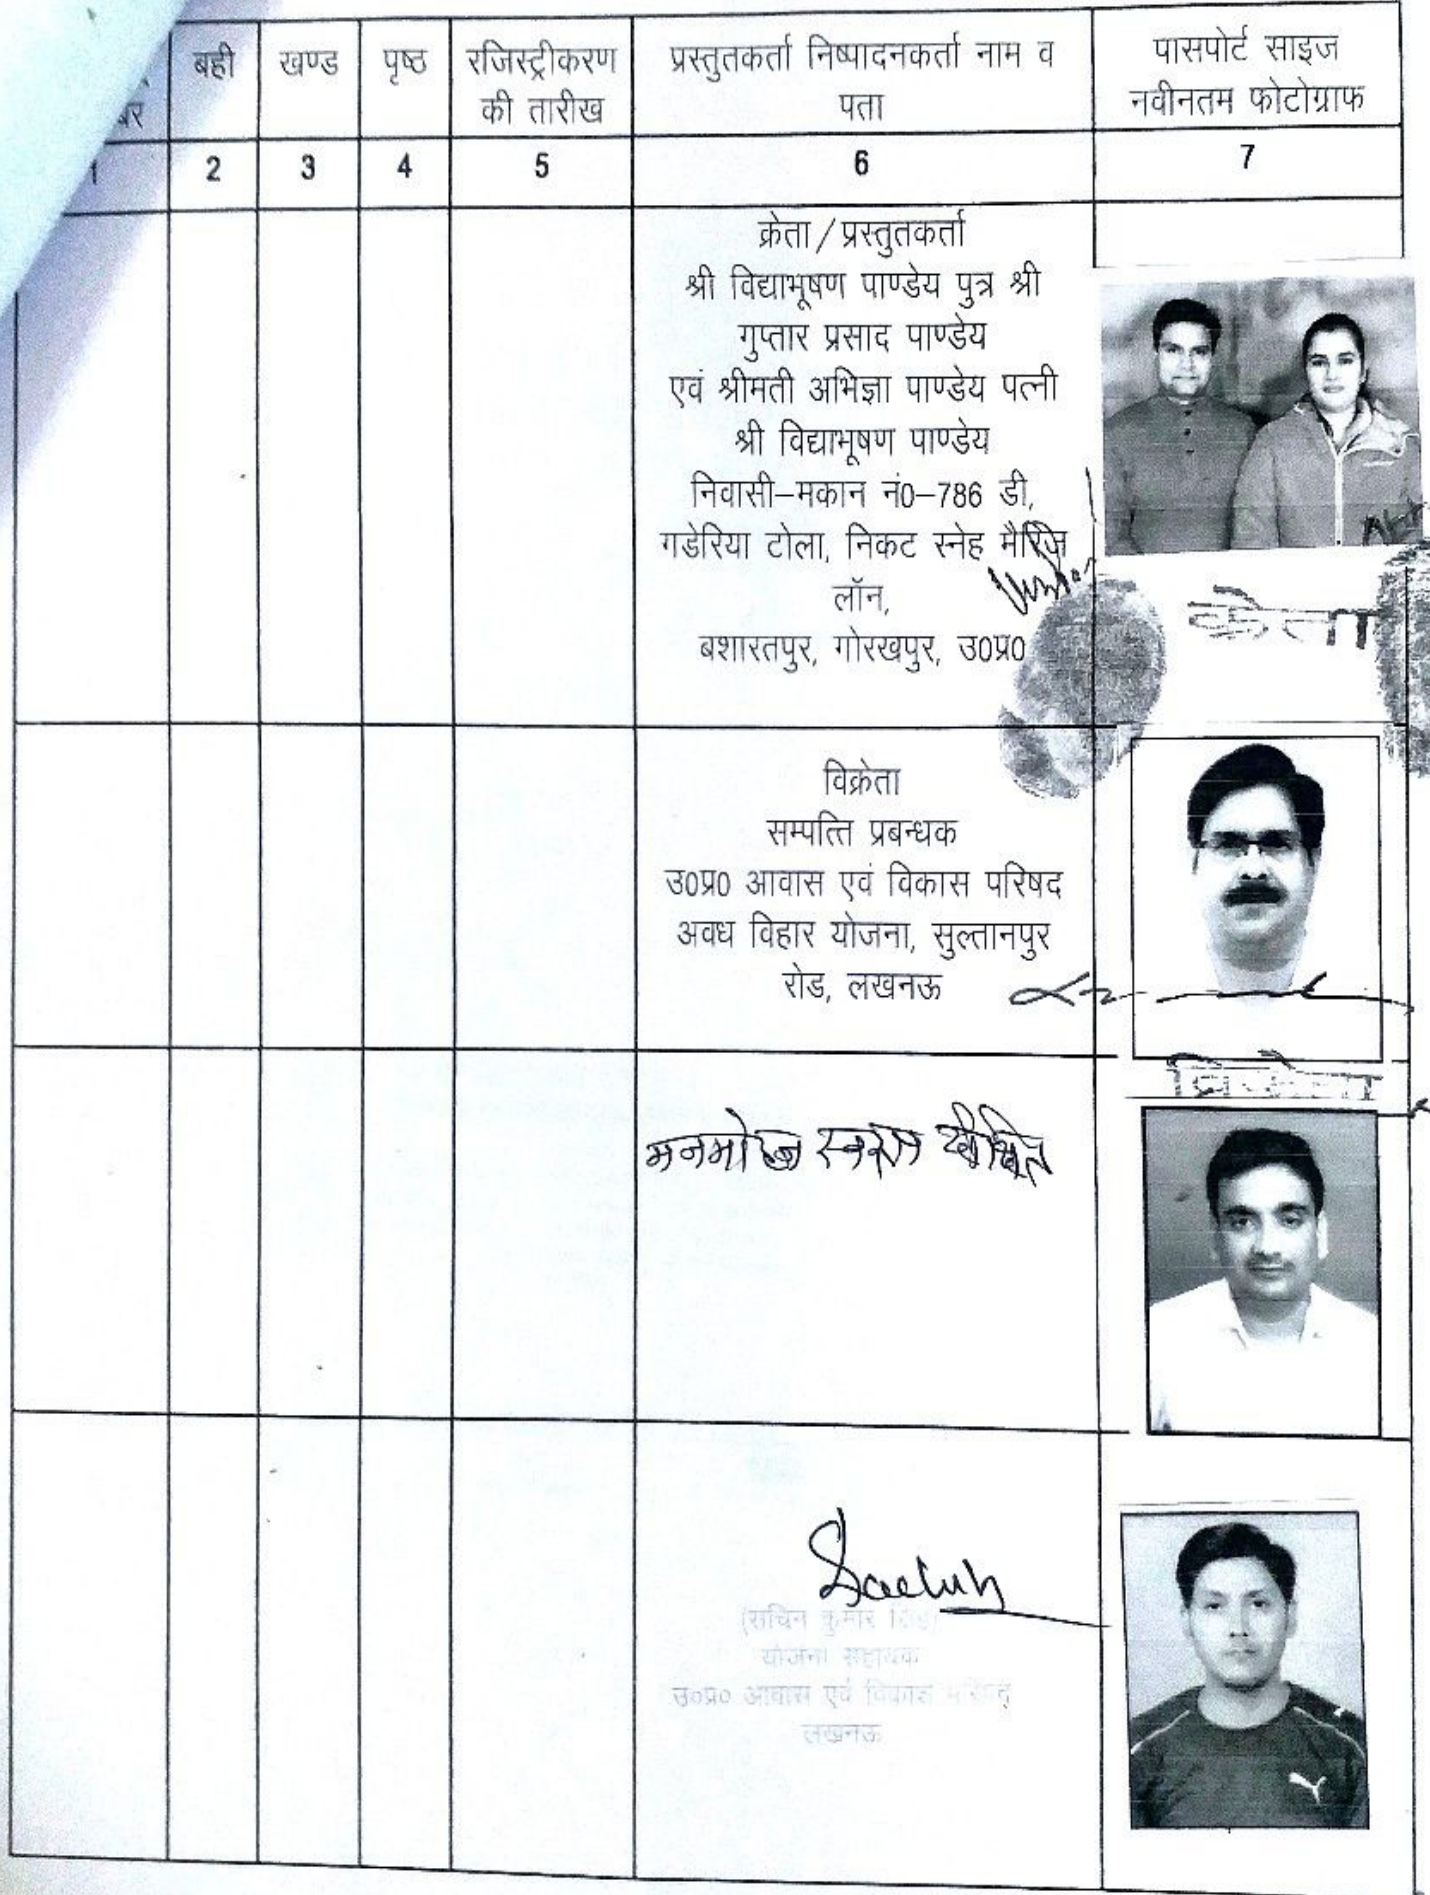 बही
खण्ड
पृष्ठ
रजिस्ट्रीकरण
की तारीख
प्रस्तुतकर्ता निष्पादनकर्ता नाम व
पता
पासपोर्ट साइज
नवीनतम फोटोग्राफ
1 2 3 4 5 6 7
क्रेता / प्रस्तुतकर्ता
श्री विद्याभूषण पाण्डेय पुत्र श्री
गुप्तार प्रसाद पाण्डेय
एवं श्रीमती अभिज्ञा पाण्डेय पत्नी
श्री विद्याभूषण पाण्डेय
निवासी-मकान नं0-786 डी,
गडेरिया टोला, निकट स्नेह मैरिज
लॉन,
बशारतपुर, गोरखपुर, उ0प्र0
क्रेता
विक्रेता
सम्पत्ति प्रबन्धक
उ0प्र0 आवास एवं विकास परिषद
अवध विहार योजना, सुल्तानपुर
रोड, लखनऊ
विक्रेता
मनमोहन स्वरूप दीक्षित
(सचिन कुमार सिंह)
योजना सहायक
उ०प्र० आवास एवं विकास परिषद्
लखनऊ